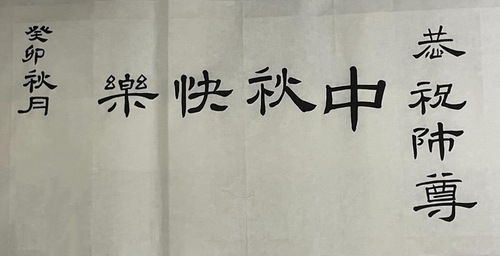 恭祝師尊
中秋快樂
癸卯秋月